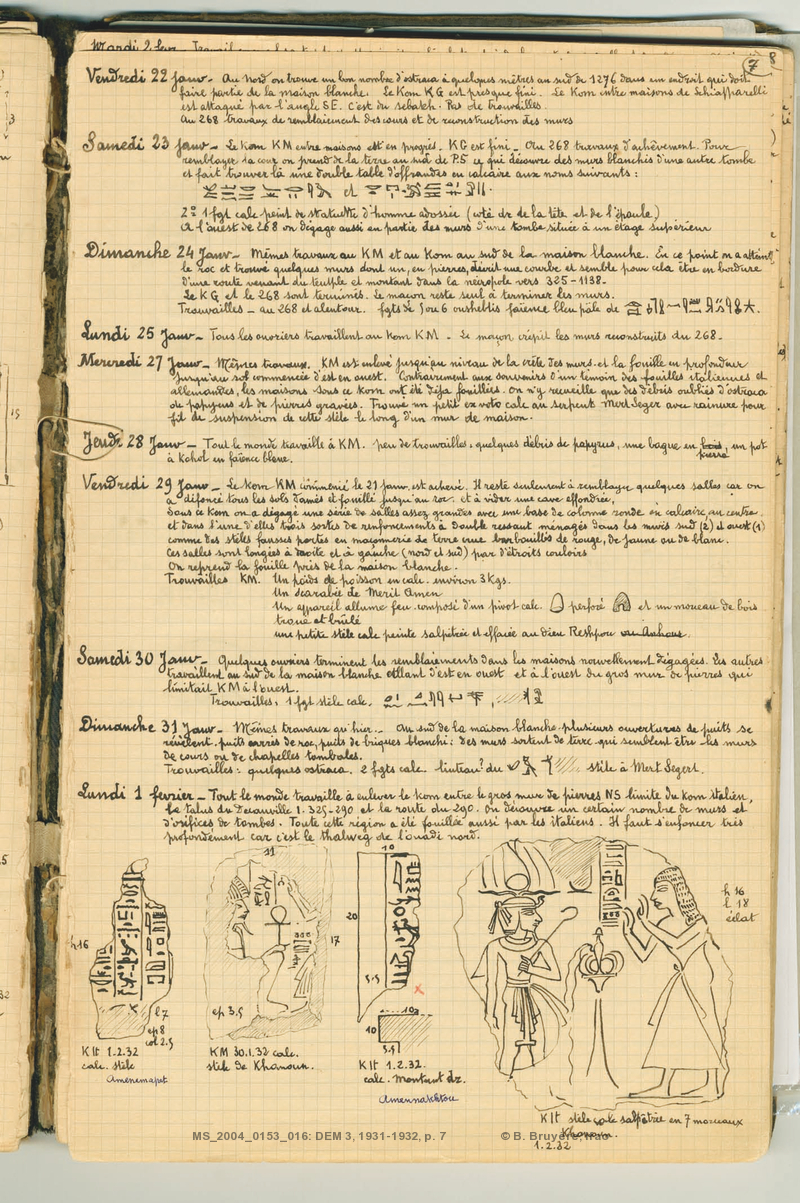 Mardi 2 fevr.
7
8
Vendredi 22 Janv - Au Nord on trouve un bon nombre d'ostraca à quelques mètres au sud de 1276 dans un endroit qui doit
faire partie de la maison blanche. Le Kom KG est presque fini. Le Kom entre maisons de Schiapparelli
est attaqué par l'angle SE. C'est du sebakh. Pas de trouvailles.
Au 268 travaux de remblaiement des cours et de reconstruction des murs
Samedi 23 Janv - Le Kom KM entre maisons est en progrès. KG est fini - Au 268 travaux d'achèvement. Pour
remblayer la cour on prend de la terre au sud de P.5 ce qui découvre des murs blanchis d'une autre tombe
et fait trouver là une double table d'offrandes en calcaire aux noms suivants :
et
2° 1 fgt calc peint de statuette d'homme adossée (coté dr de la tête et de l'épaule.)
A l'ouest de 268 on dégage aussi en partie des murs d'une tombe située à un étage supérieur
Dimanche 24 Janv - Mêmes travaux au KM et au Kom au sud de la maison blanche. En ce point on a atteint
le roc et trouvé quelques murs dont un, en pierres, décrit une courbe et semble pour cela être en bordure
d'une route venant du temple et montant dans la nécropole vers 325-1138.
Le KG et le 268 sont terminés. Le maçon reste seul à terminer les murs.
Trouvailles - au 268 et alentour. fgts de 5 ou 6 oushebtis faïence bleu pâle de
Lundi 25 Janv - Tous les ouvriers travaillent au Kom KM - Le maçon crépit les murs reconstruits du 268.
Mercredi 27 Janv - Mêmes travaux. KM est enlevé jusqu'au niveau de la crête des murs et la fouille en profondeur
jusqu'au sol commencée d'est en ouest. Contrairement aux souvenirs d'un témoin des fouilles italiennes et
allemandes, les maisons sous ce Kom ont été déjà fouillées. On n'y recueille que des débris oubliés d'ostraca
de papyrus et de pierres gravées. Trouvé un petit ex voto calc au serpent Mert Seger avec rainure pour
fil de suspension de cette stèle le long d'un mur de maison.
Jeudi 28 Janv - Tout le monde travaille à KM. peu de trouvailles : quelques débris de papyrus, une bague en pierre, un pot
à Kohol en faïence bleue.
Vendredi 29 Janv - Le Kom KM commencé le 21 janv. est achevé. Il reste seulement à remblayer quelques salles car on
a défoncé tous les sols damés et fouillé jusqu'au roc. et à vider une cave effondrée.
Sous ce Kom on a dégagé une série de salles assez grandes avec une base de colonne ronde en calcaire au centre
et dans l'une d'elles trois sortes de renfoncements à double ressaut ménagés dans les murs sud (2) et ouest (1)
comme des stèles fausses portes en maçonnerie de terre crue barbouillés de rouge, de jaune ou de blanc.
Ces salles sont longées à droite et à gauche (nord et sud) par d'étroits couloirs
On reprend la fouille près de la maison blanche.
Trouvailles KM. Un poids de poisson en calc. environ 3 Kgs.
Un scarabée de Merit Amen
Un appareil allume feu composé d'un pivot calc. perforé et un morceau de bois
troué et brûlé
une petite stèle calc peinte salpêtrée et effacée au dieu Reshpou ou Anhour.
Samedi 30 Janv - Quelques ouvriers terminent les remblaiements dans les maisons nouvellement dégagées. Les autres
travaillent au sud de la maison blanche allant d'est en ouest et à l'ouest du gros mur de pierres qui
limitait KM à l'ouest.
Trouvailles, 1 fgt stèle calc.
Dimanche 31 Janv - Mêmes travaux qu'hier - Au sud de la maison blanche plusieurs ouvertures de puits se
révèlent. puits carrés de roc, puits de briques blanchi : des murs sortent de terre qui semblent être les murs
de cours ou de chapelles tombales.
Trouvailles : quelques ostraca. 2 fgts calc. linteau? du stèle à Mert Segert.
Lundi 1 fevrier - Tout le monde travaille à enlever le Kom entre le gros mur de pierres NS limite du Kom italien,
le talus du Decauville 1.325-290 et la route du 290. On découvre un certain nombre de murs et
d'orifices de tombes. Toute cette région a été fouillée aussi par les italiens. Il faut s'enfoncer très
profondément car c'est le thalweg de l'ouadi nord.
h 16
l 7
ep 8
col 2.5
K lt 1.2.32
calc. stèle
Amenemapt
11
17
ep 3.5
KM 30.1.32 calc.
stèle de Khanoun.
10
20
5.5
x
10
10
5.5
K lt 1.2.32.
calc. Montant dr.
Amennakhtou
h 16
l 18
éclat
K lt stèle calc salpêtrée en 7 morceaux
1.2.32
MS_2004_0153_016: DEM 3, 1931-1932, p. 7
© B. Bruyère, Ifao